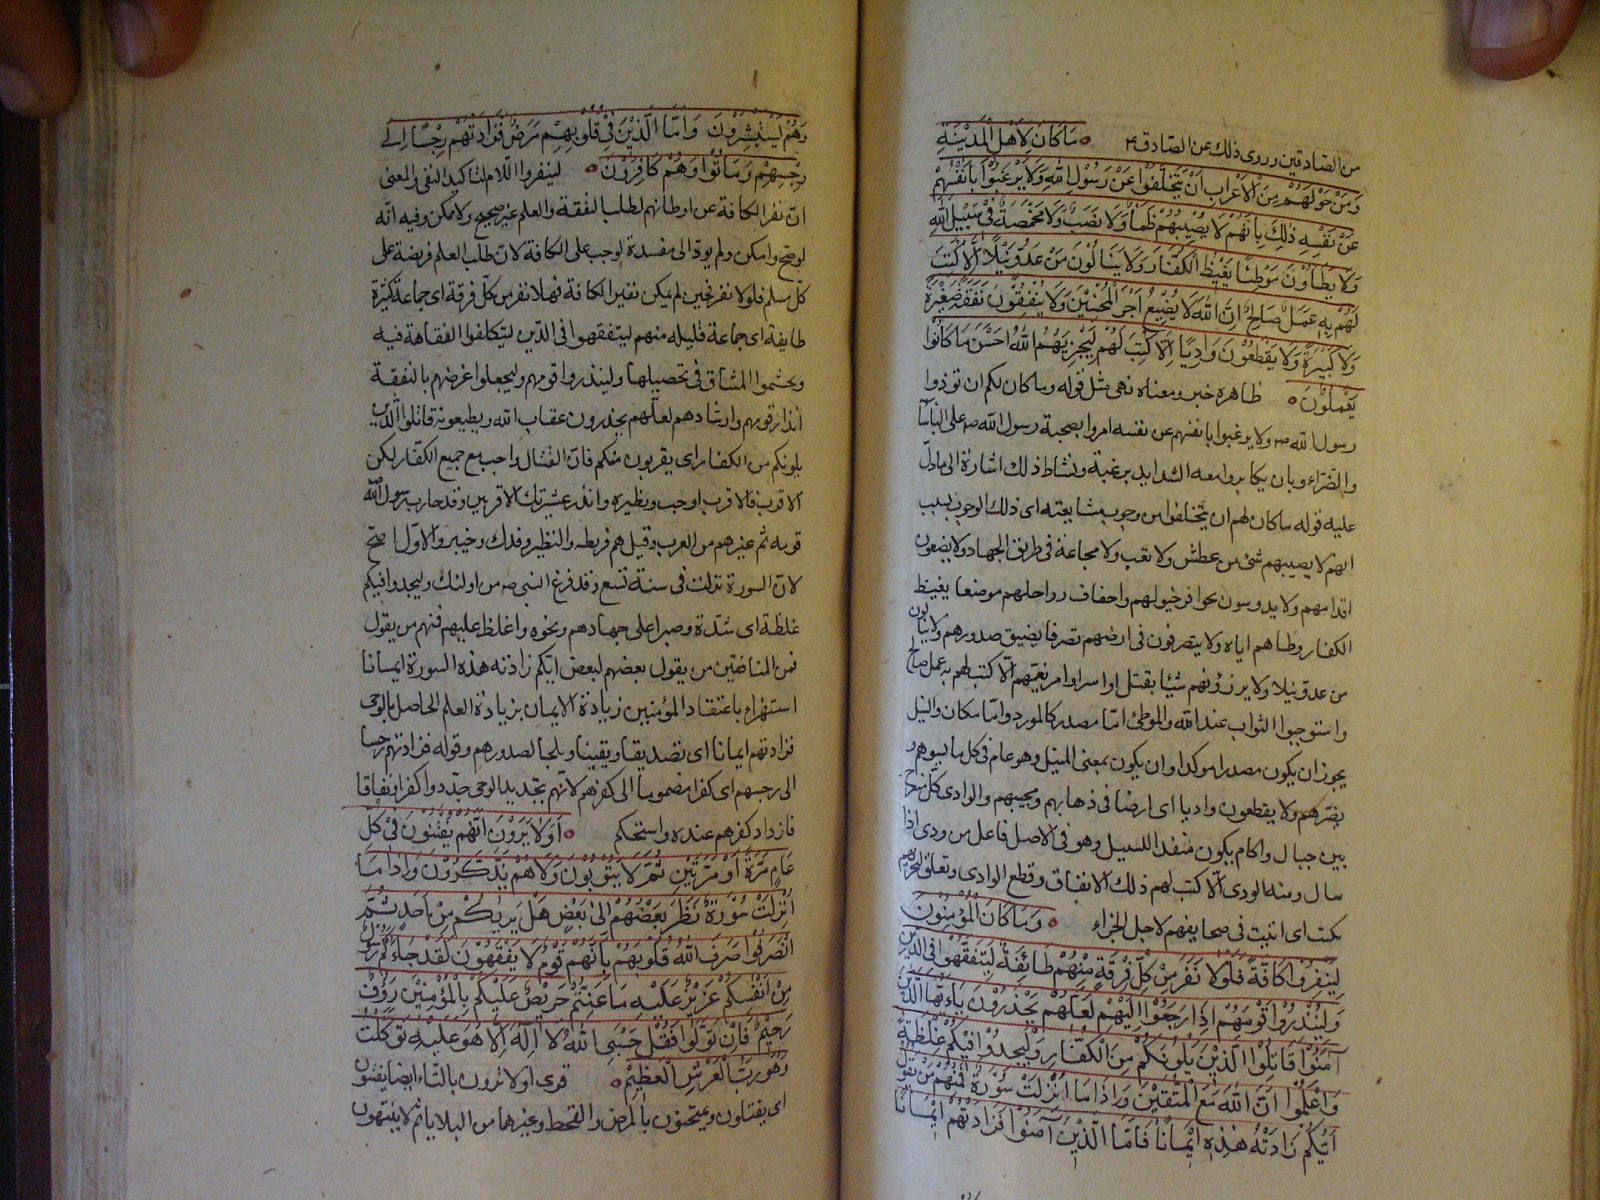 من الصادقين وروى ذلك عن الصادق ع ۝ مَا كَانَ لِاَهْلِ الْمَدِيْنَةِ
وَمَنْ حَوْلَهُمْ مِنَ الْاَعْرَابِ اَنْ يَتَخَلَّفُوْا عَنْ رَسُوْلِ اللّٰهِ وَلَا يَرْغَبُوْا بِاَنْفُسِهِمْ
عَنْ نَفْسِهِ ذٰلِكَ بِاَنَّهُمْ لَا يُصِيْبُهُمْ ظَمَأٌ وَلَا نَصَبٌ وَلَا مَخْمَصَةٌ فِيْ سَبِيْلِ اللّٰهِ
وَلَا يَطَأُوْنَ مَوْطِئًا يَغِيْظُ الْكُفَّارَ وَلَا يَنَالُوْنَ مِنْ عَدُوٍّ نَيْلًا اِلَّا كُتِبَ
لَهُمْ بِهِ عَمَلٌ صَالِحٌ اِنَّ اللّٰهَ لَا يُضِيْعُ اَجْرَ الْمُحْسِنِيْنَ وَلَا يُنْفِقُوْنَ نَفَقَةً صَغِيْرَةً
وَلَا كَبِيْرَةً وَلَا يَقْطَعُوْنَ وَادِيًا اِلَّا كُتِبَ لَهُمْ لِيَجْزِيَهُمُ اللّٰهُ اَحْسَنَ مَا كَانُوْا
يَعْمَلُوْنَ ۝ ظاهره خبر ومعناه نهى مثل قوله وما كان لكم ان تؤذوا
رسول الله ص ولا يرغبوا بانفسهم عن نفسه امروا بصحبة رسول الله ص على البأساء
والضراء وبان يكابدوا معه الشدايد برغبة ونشاط ذلك اشارة الى ما دل
عليه قوله ما كان لهم ان يتخلفوا من وجوب مشايعته اى ذلك الوجوب بسبب
انهم لا يصيبهم شئ من عطش ولا تعب ولا مجاعة فى طريق الجهاد ولا يضعون
اقدامهم ولا يدوسون بحوافر خيولهم واخفاف رواحلهم موضعا يغيظ
الكفار وطأهم اياه ولا يتصرفون فى ارضهم تصرفا يضيق صدورهم ولا ينالون
من عدو نيلا ولا يرزؤنهم شيئا بقتل او اسر او امر يغمهم الا كتب لهم به عمل صالح
واستوجبوا الثواب عند الله والموطئ اما مصدر كالمورد واما مكان والنيل
يجوز ان يكون مصدرا مؤكدا وان يكون بمعنى المنيل وهو عام فى كل ما يسوءهم
يضرهم ولا يقطعون واديا اى ارضا فى ذهابهم ومجيئهم والوادى كل منفرج
بين جبال واكام يكون منفذا للسيل وهو فى الاصل فاعل من ودى اذا
سال ومنه الودى الا كتب لهم ذلك الانفاق وقطع الوادى وتعلق ليجزيهم
بكتب اى اثبت فى صحايفهم لاجل الجزاء ۝ وَمَا كَانَ الْمُؤْمِنُوْنَ
لِيَنْفِرُوْا كَافَّةً فَلَوْلَا نَفَرَ مِنْ كُلِّ فِرْقَةٍ مِنْهُمْ طَائِفَةٌ لِيَتَفَقَّهُوْا فِى الدِّيْنِ
وَلِيُنْذِرُوْا قَوْمَهُمْ اِذَا رَجَعُوْا اِلَيْهِمْ لَعَلَّهُمْ يَحْذَرُوْنَ يَاءَيُّهَا الَّذِيْنَ
آمَنُوْا قَاتِلُوْا الَّذِيْنَ يَلُوْنَكُمْ مِنَ الْكُفَّارِ وَلْيَجِدُوْا فِيْكُمْ غِلْظَةً
وَاعْلَمُوْا اَنَّ اللّٰهَ مَعَ الْمُتَّقِيْنَ وَاِذَا مَا اُنْزِلَتْ سُوْرَةٌ فَمِنْهُمْ مَنْ يَقُوْلُ
اَيُّكُمْ زَادَتْهُ هٰذِهِ اِيْمَانًا فَاَمَّا الَّذِيْنَ آمَنُوْا فَزَادَتْهُمْ اِيْمَانًا
وَهُمْ يَسْتَبْشِرُوْنَ وَاَمَّا الَّذِيْنَ فِيْ قُلُوْبِهِمْ مَرَضٌ فَزَادَتْهُمْ رِجْسًا اِلٰى
رِجْسِهِمْ وَمَاتُوْا وَهُمْ كَافِرُوْنَ ۝ لينفروا اللام لتاكيد النفى والمعنى
ان نفر الكافة عن اوطانهم لطلب الفقه والعلم غير صحيح ولا ممكن وفيه انه
لو صح وامكن ولم يؤد الى مفسدة لوجب على الكافة لان طلب العلم فريضة على
كل مسلم فلولا نفر فحين لم يكن نفير الكافة فهلا نفر من كل فرقة اى جماعة كثيرة
طايفة اى جماعة قليله منهم ليتفقهوا فى الدين ليتكلفوا الفقاهة فيه
ويتجشموا المشاق فى تحصيلها ولينذروا قومهم وليجعلوا غرضهم بالتفقه
انذار قومهم وارشادهم لعلهم يحذرون عقاب الله ويطيعونه قاتلوا الذين
يلونكم من الكفار اى يقربون منكم فان القتال واجب مع جميع الكفار لكن
الاقرب فالاقرب اوجب ونظيره وانذر عشيرتك الاقربين وقد حارب رسول الله
قومه ثم غيرهم من العرب وقيل هم قريظه والنظير وفدك وخيبر والاول اصح
لان السورة نزلت فى سنة تسع وقد فرغ النبى ص من اولئك وليجدوا فيكم
غلظة اى شدة وصبرا على جهادهم ونحوه واغلظ عليهم فمنهم من يقول
فمن المنافقين من يقول بعضهم لبعض ايكم زادته هذه السورة ايمانا
استهزاء باعتقاد المؤمنين زيادة الايمان بزيادة العلم الحاصل بالوحى
فزادتهم ايمانا اى تصديقا ويقينا وثلجا لصدورهم وقوله فزادتهم رجسا
الى رجسهم اى كفرا مضموما الى كفرهم لانهم بتجديد الوحى جددوا كفرا ونفاقا
فازداد كفرهم عنده واستحكم ۝ اَوَلَا يَرَوْنَ اَنَّهُمْ يُفْتَنُوْنَ فِيْ كُلِّ
عَامٍ مَرَّةً اَوْ مَرَّتَيْنِ ثُمَّ لَا يَتُوْبُوْنَ وَلَا هُمْ يَذَّكَّرُوْنَ وَاِذَا مَا
اُنْزِلَتْ سُوْرَةٌ نَظَرَ بَعْضُهُمْ اِلٰى بَعْضٍ هَلْ يَرٰيكُمْ مِنْ اَحَدٍ ثُمَّ
انْصَرَفُوْا صَرَفَ اللّٰهُ قُلُوْبَهُمْ بِاَنَّهُمْ قَوْمٌ لَا يَفْقَهُوْنَ لَقَدْ جَاءَكُمْ رَسُوْلٌ
مِنْ اَنْفُسِكُمْ عَزِيْزٌ عَلَيْهِ مَا عَنِتُّمْ حَرِيْصٌ عَلَيْكُمْ بِالْمُؤْمِنِيْنَ رَؤُفٌ
رَحِيْمٌ فَاِنْ تَوَلَّوْا فَقُلْ حَسْبِيَ اللّٰهُ لَا اِلٰهَ اِلَّا هُوَ عَلَيْهِ تَوَكَّلْتُ
وَهُوَ رَبُّ الْعَرْشِ الْعَظِيْمِ ۝ قرى اولا ترون بالتاء ايضا يفتنون
اى يفتنلون ويمتحنون بالمرض والقحط وغيرهما من البلايا ثم لا ينتهون